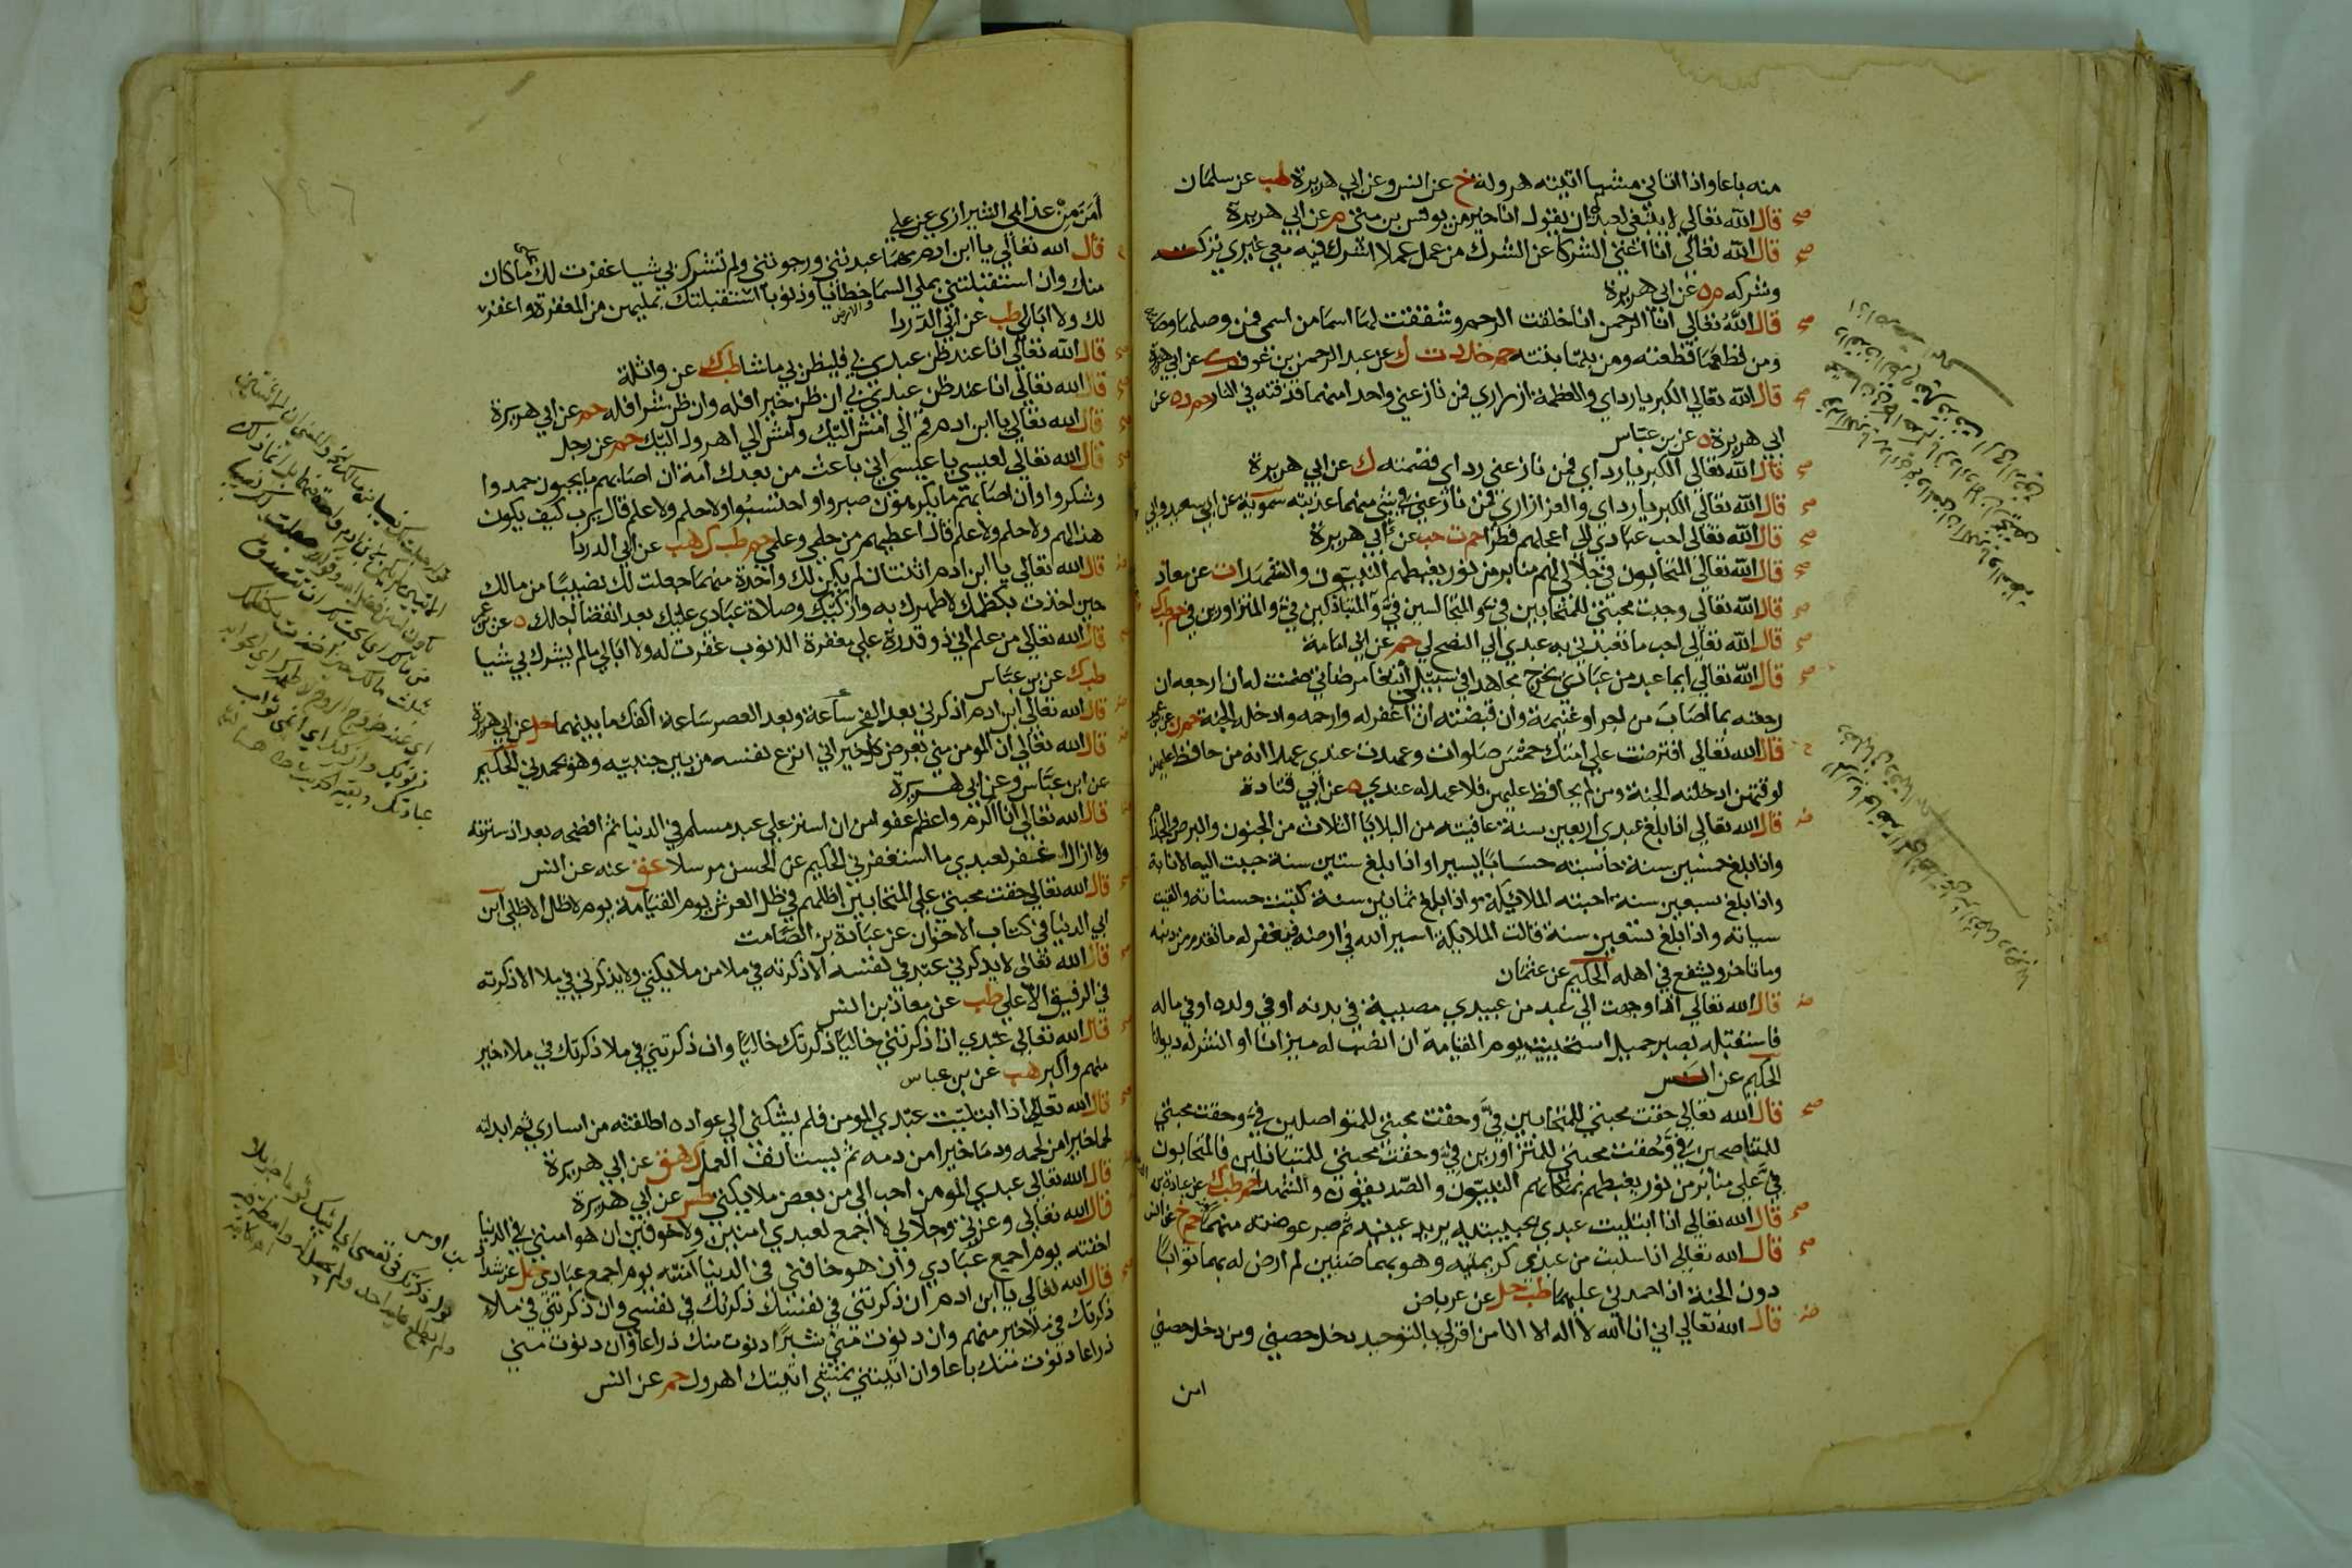 منه باعا واذا اتاني مشيا اتيته هرولة خ عن انس وعن ابي هريرة طب عن سلمان
قال الله تعالي لا ينبغي لعبد ان يقول انا خير من يونس بن متي م عن ابي هريرة
قال الله تعالي انا اغني الشركا عن الشرك من عمل عملا اشرك فيه معي غيري تركته
وشركه م ه عن ابي هريرة
قال الله تعالي انا الرحمن انا خلقت الرحم وشققت لها اسما من اسمي فمن وصلها وصلته
ومن قطعها قطعته ومن بتها بتته حم خد د ت ك عن عبد الرحمن بن عوف ك عن ابي هريرة
قال الله تعالي الكبريا رداي والعظمة ازاري فمن نازعني واحدا منهما قذفته في النار حم د ه عن
ابي هريرة ه عن بن عباس
قال الله تعالي الكبريا رداي فمن نازعني رداي قصمته ك عن ابي هريرة
قال الله تعالي الكبريا رداي والعز ازاري فمن نازعني في شي منهما عذبته سمويه عن ابي سعيد وابي
قال الله تعالي احب عبادي الي اعجلهم فطرا حم ت حب عن ابي هريرة
قال الله تعالي المتحابون في جلالي لهم منابر من نور يغبطهم النبيون والشهدا ت عن معاذ
قال الله تعالي وجبت محبتي للمتحابين في والمتجالسين في والمتباذلين في والمتزاورين في حم طب ك
قال الله تعالي احب ما تعبدني به عبدي الي النصح لي حم عن ابي امامة
قال الله تعالي ايما عبد من عبادي يخرج مجاهدا في سبيلي ابتغا مرضاتي ضمنت له ان ارجعه ان
رجعته بما اصاب من اجر او غنيمة وان قبضته ان اغفر له وارحمه وادخله الجنة حم ن عن بن عمر
قال الله تعالي افترضت علي امتك خمس صلوات وعهدت عندي عهدا انه من حافظ عليهن
لوقتهن ادخلته الجنة ومن لم يحافظ عليهن فلا عهد له عندي ه عن ابي قتادة
قال الله تعالي اذا بلغ عبدي اربعين سنة عافيته من البلايا الثلاث من الجنون والبرص والجذام
واذا بلغ خمسين سنة حاسبته حسابا يسيرا واذا بلغ ستين سنة حببت اليه الانابة
واذا بلغ سبعين سنة احبته الملائكة واذا بلغ ثمانين سنة كتبت حسناته والقيت
سياته واذا بلغ تسعين سنة قالت الملايكة اسير الله في ارضه فيغفر له ما تقدم من ذنبه
وما تاخر ويشفع في اهله الحكيم عن عثمان
قال الله تعالي اذا وجهت الي عبد من عبيدي مصيبة في بدنه او في ولده او في ماله
فاستقبله بصبر جميل استحييت يوم القيامة ان انصب له ميزانا او انشر له ديوانا
الحكيم عن انس
قال الله تعالي حقت محبتي للمتحابين في وحقت محبتي للمتواصلين في وحقت محبتي
للمتناصحين في وحقت محبتي للمتزاورين في وحقت محبتي للمتباذلين في المتحابون
في علي منابر من نور يغبطهم بمكانهم النبيون والصديقون والشهدا حم طب ك عن عبادة بن
قال الله تعالي اذا ابتليت عبدي بحبيبتيه يريد عينيه ثم صبر عوضته منهما الجنة حم خ عن انس
قال الله تعالي اذا سلبت من عبدي كريمتيه وهو بهما ضنين لم ارض له بهما ثوابا
دون الجنة اذا حمدني عليهما طب حل عن عرباض
قال الله تعالي اني انا الله لا اله الا انا من اقر لي بالتوحيد دخل حصني ومن دخل حصني
امن
امن من عذابي الشيرازي عن علي
قال الله تعالي يا ابن ادم مهما عبدتني ورجوتني ولم تشرك بي شيا غفرت لك ما كان
منك وان استقبلتني بملي السما والارض خطايا وذنوبا استقبلتك بمليهن من المغفرة واغفر
لك ولا ابالي طب عن ابي الدردا
قال الله تعالي انا عند ظن عبدي بي فليظن بي ما شا طب ك عن واثلة
قال الله تعالي انا عند ظن عبدي بي ان ظن خيرا فله وان ظن شرا فله حم عن ابي هريرة
قال الله تعالي يا ابن ادم قم الي امش اليك وامش الي اهرول اليك حم عن رجل
قال الله تعالي لعيسي يا عيسي اني باعث من بعدك امة ان اصابهم ما يحبون حمدوا
وشكروا وان اصابهم ما يكرهون صبروا واحتسبوا ولا حلم ولا علم قال يرب كيف يكون
هذا لهم ولا حلم ولا علم قال اعطيهم من حلمي وعلمي حم طب ك هب عن ابي الدردا
قال الله تعالي يا ابن ادم اثنتان لم يكن لك واحدة منهما جعلت لك نصيبا من مالك
حين اخذت بكظمك لاطهرك به وازكيك وصلاة عبادي عليك بعد انقضا اجلك ه عن بن عمر
قال الله تعالي من علم اني ذو قدرة علي مغفرة الذنوب غفرت له ولا ابالي مالم يشرك بي شيا
طب ك عن بن عباس
قال الله تعالي ابن ادم اذكرني بعد الفجر ساعة وبعد العصر ساعة اكفك ما بينهما حل عن ابي هريرة
قال الله تعالي ان المومن مني بعرض كل خير اني انزع نفسه من بين جنبيه وهو يحمدني الحكيم
عن ابن عباس وعن ابي هريرة
قال الله تعالي انا اكرم واعظم عفوا من ان استر علي عبد مسلم في الدنيا ثم افضحه بعد اذ سترته
ولا ازال اغفر لعبدي ما استغفرني الحكيم عن الحسن مرسلا عق عنه عن انس
قال الله تعالي حقت محبتي علي المتحابين اظلهم في ظل العرش يوم القيامة يوم لا ظل الا ظلي ابن
ابي الدنيا في كتاب الاخوان عن عبادة بن الصامت
قال الله تعالي لا يذكرني عبد في نفسه الا ذكرته في ملا من ملايكتي ولا يذكرني في ملا الا ذكرته
في الرفيق الاعلي طب عن معاذ بن انس
قال الله تعالي عبدي اذا ذكرتني خاليا ذكرتك خاليا وان ذكرتني في ملا ذكرتك في ملاء خير
منهم واكبر هب عن بن عباس
قال الله تعالي اذا ابتليت عبدي المومن فلم يشكني الي عواده اطلقته من اساري ثم ابدلته
لحما خيرا من لحمه ودما خيرا من دمه ثم يستانف العمل ك هق عن ابي هريرة
قال الله تعالي عبدي المومن احب الي من بعض ملايكتي طس عن ابي هريرة
قال الله تعالي وعزتي وجلالي لا اجمع لعبدي امنين ولا خوفين ان هو امنني في الدنيا
اخفته يوم اجمع عبادي وان هو خافني في الدنيا امنته يوم اجمع عبادي حل عن شداد
بن اوس
قال الله تعالي يا ابن ادم ان ذكرتني في نفسك ذكرتك في نفسي وان ذكرتني في ملاء
ذكرتك في ملا خير منهم وان دنوت مني شبرا دنوت منك ذراعا وان دنوت مني
ذراعا دنوت منك باعا وان اتيتني تمشي اتيتك اهرول حم عن انس